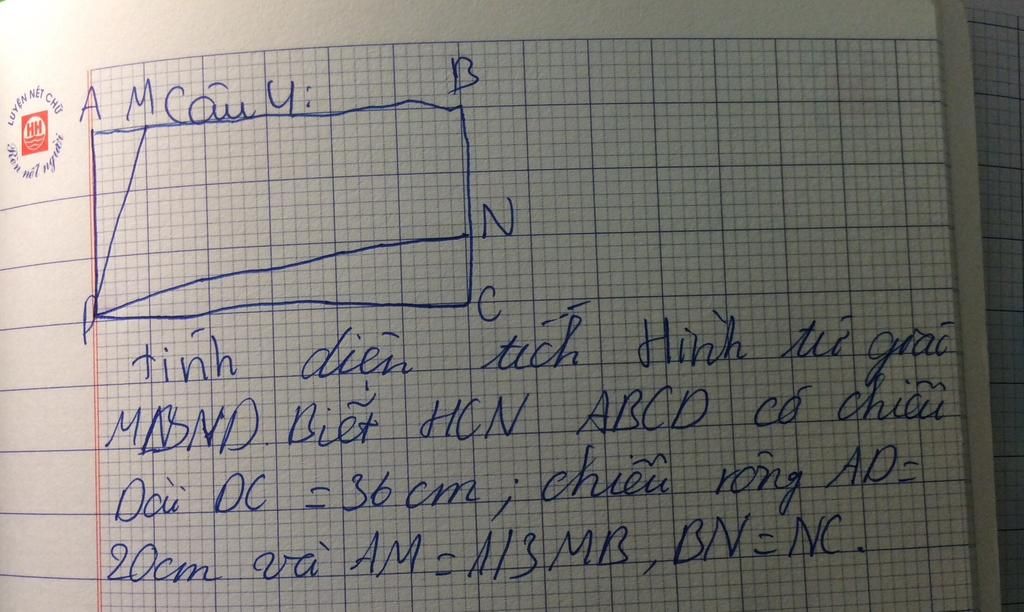 A M Câu 4: B
LUYỆN NÉT CHỮ
HH
Rèn nết người
N
D C
tính diện tích Hình tứ giác
MBND. Biết HCN ABCD có chiều
Dài DC = 36 cm; chiều rộng AD =
20cm và AM = 1/3 MB, BN = NC.